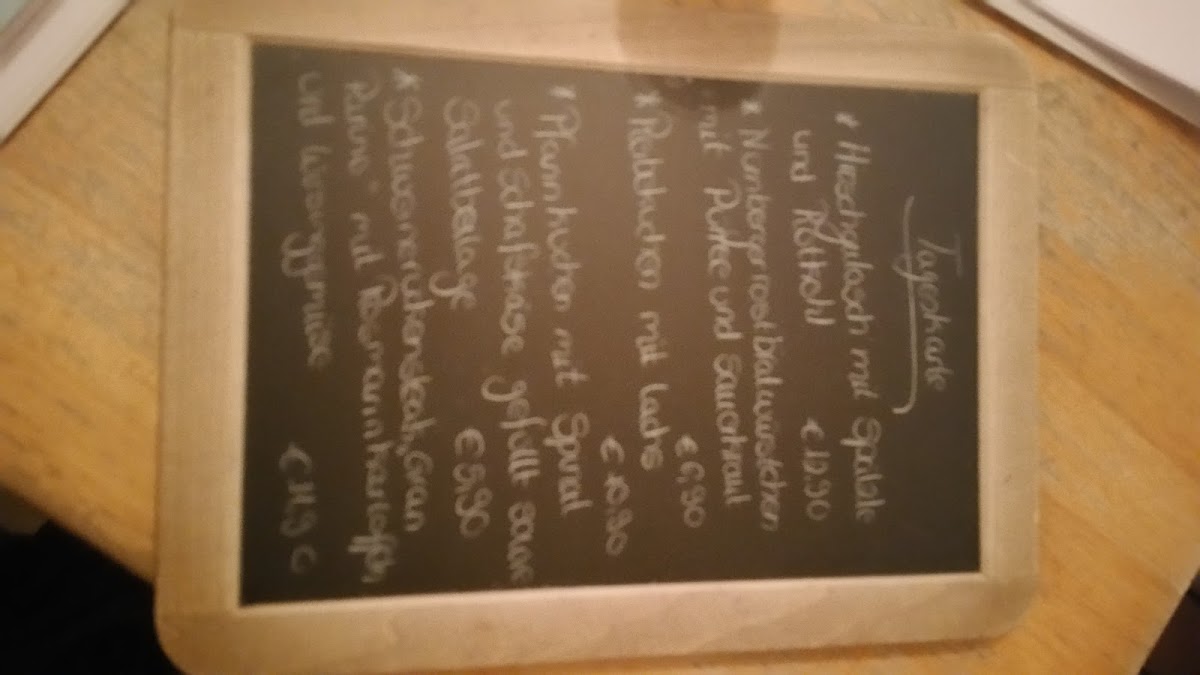 Tageskarte
* Hirschgulasch mit Spätzle
und Rotkohl €12,90
* Nürnberger rostbratwürstchen
mit Püree und Sauerkraut
€ 6,90
* Reibekuchen mit lachs
€ 10,90
* Pfannkuchen mit Spinat
und Schafskäse gefüllt sowie
Salatbeilage € 9,90
* Schweinerückensteak, Gran
Panna" mit Rosmarinkartoffeln
und